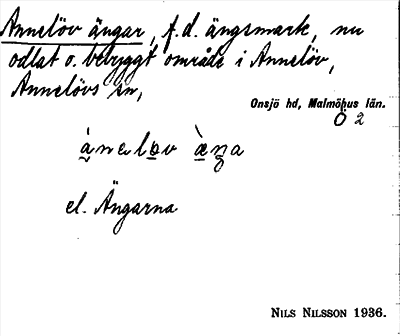 Annelöv ängar, f.d. ängsmark, nu
odlat o. bebyggt område i Annelöv,
Annelövs sn,
Onsjö hd, Malmöhus län.
Ö 2
ànelov æ̀ŋa
el. Ängarna
NILS NILSSON 1936.